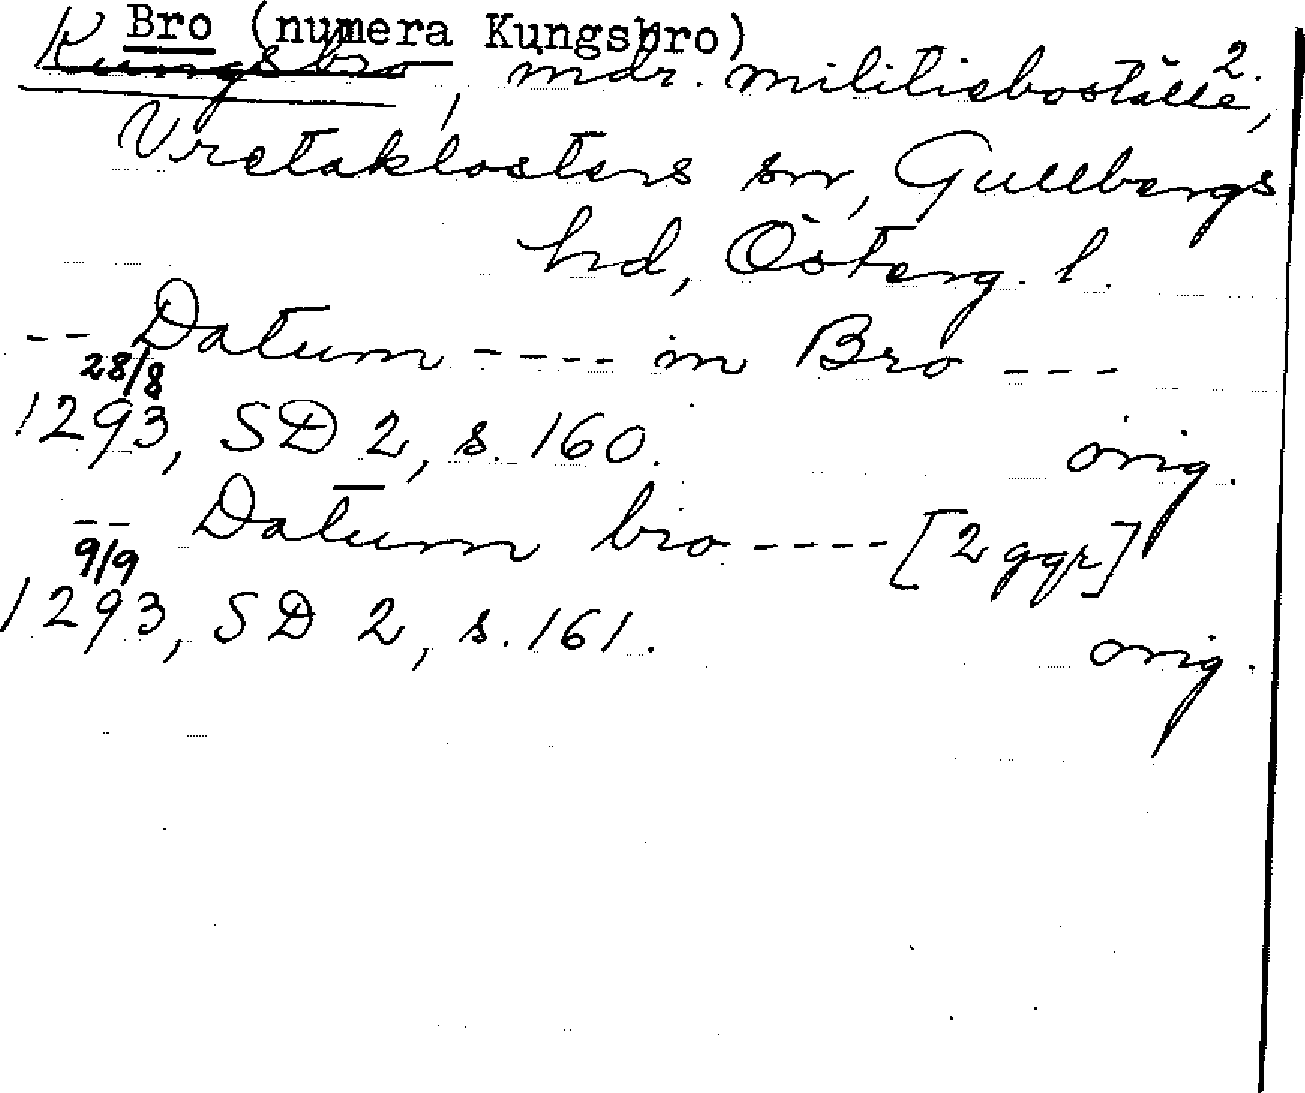 Bro (numera Kungsbro)
Kungsbro, mdr. militieboställe, 2.
Vretaklosters sn, Gullbergs
hd, Österg. l.
-- Datum ---- in Bro ---
28/8
1293, SD 2, s. 160. orig.
-- Datum bro ---- [2 ggr]
9/9
1293, SD 2, s. 161. orig.